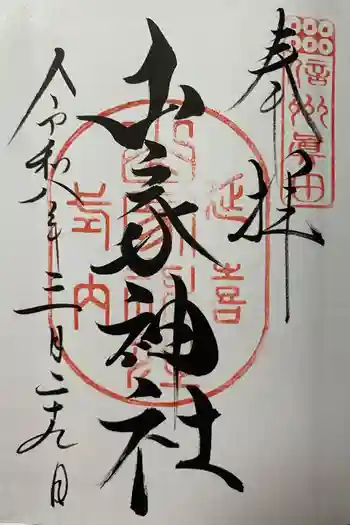 信州眞田
奉拝
延喜
式内
山家神社
令和八年三月二十九日